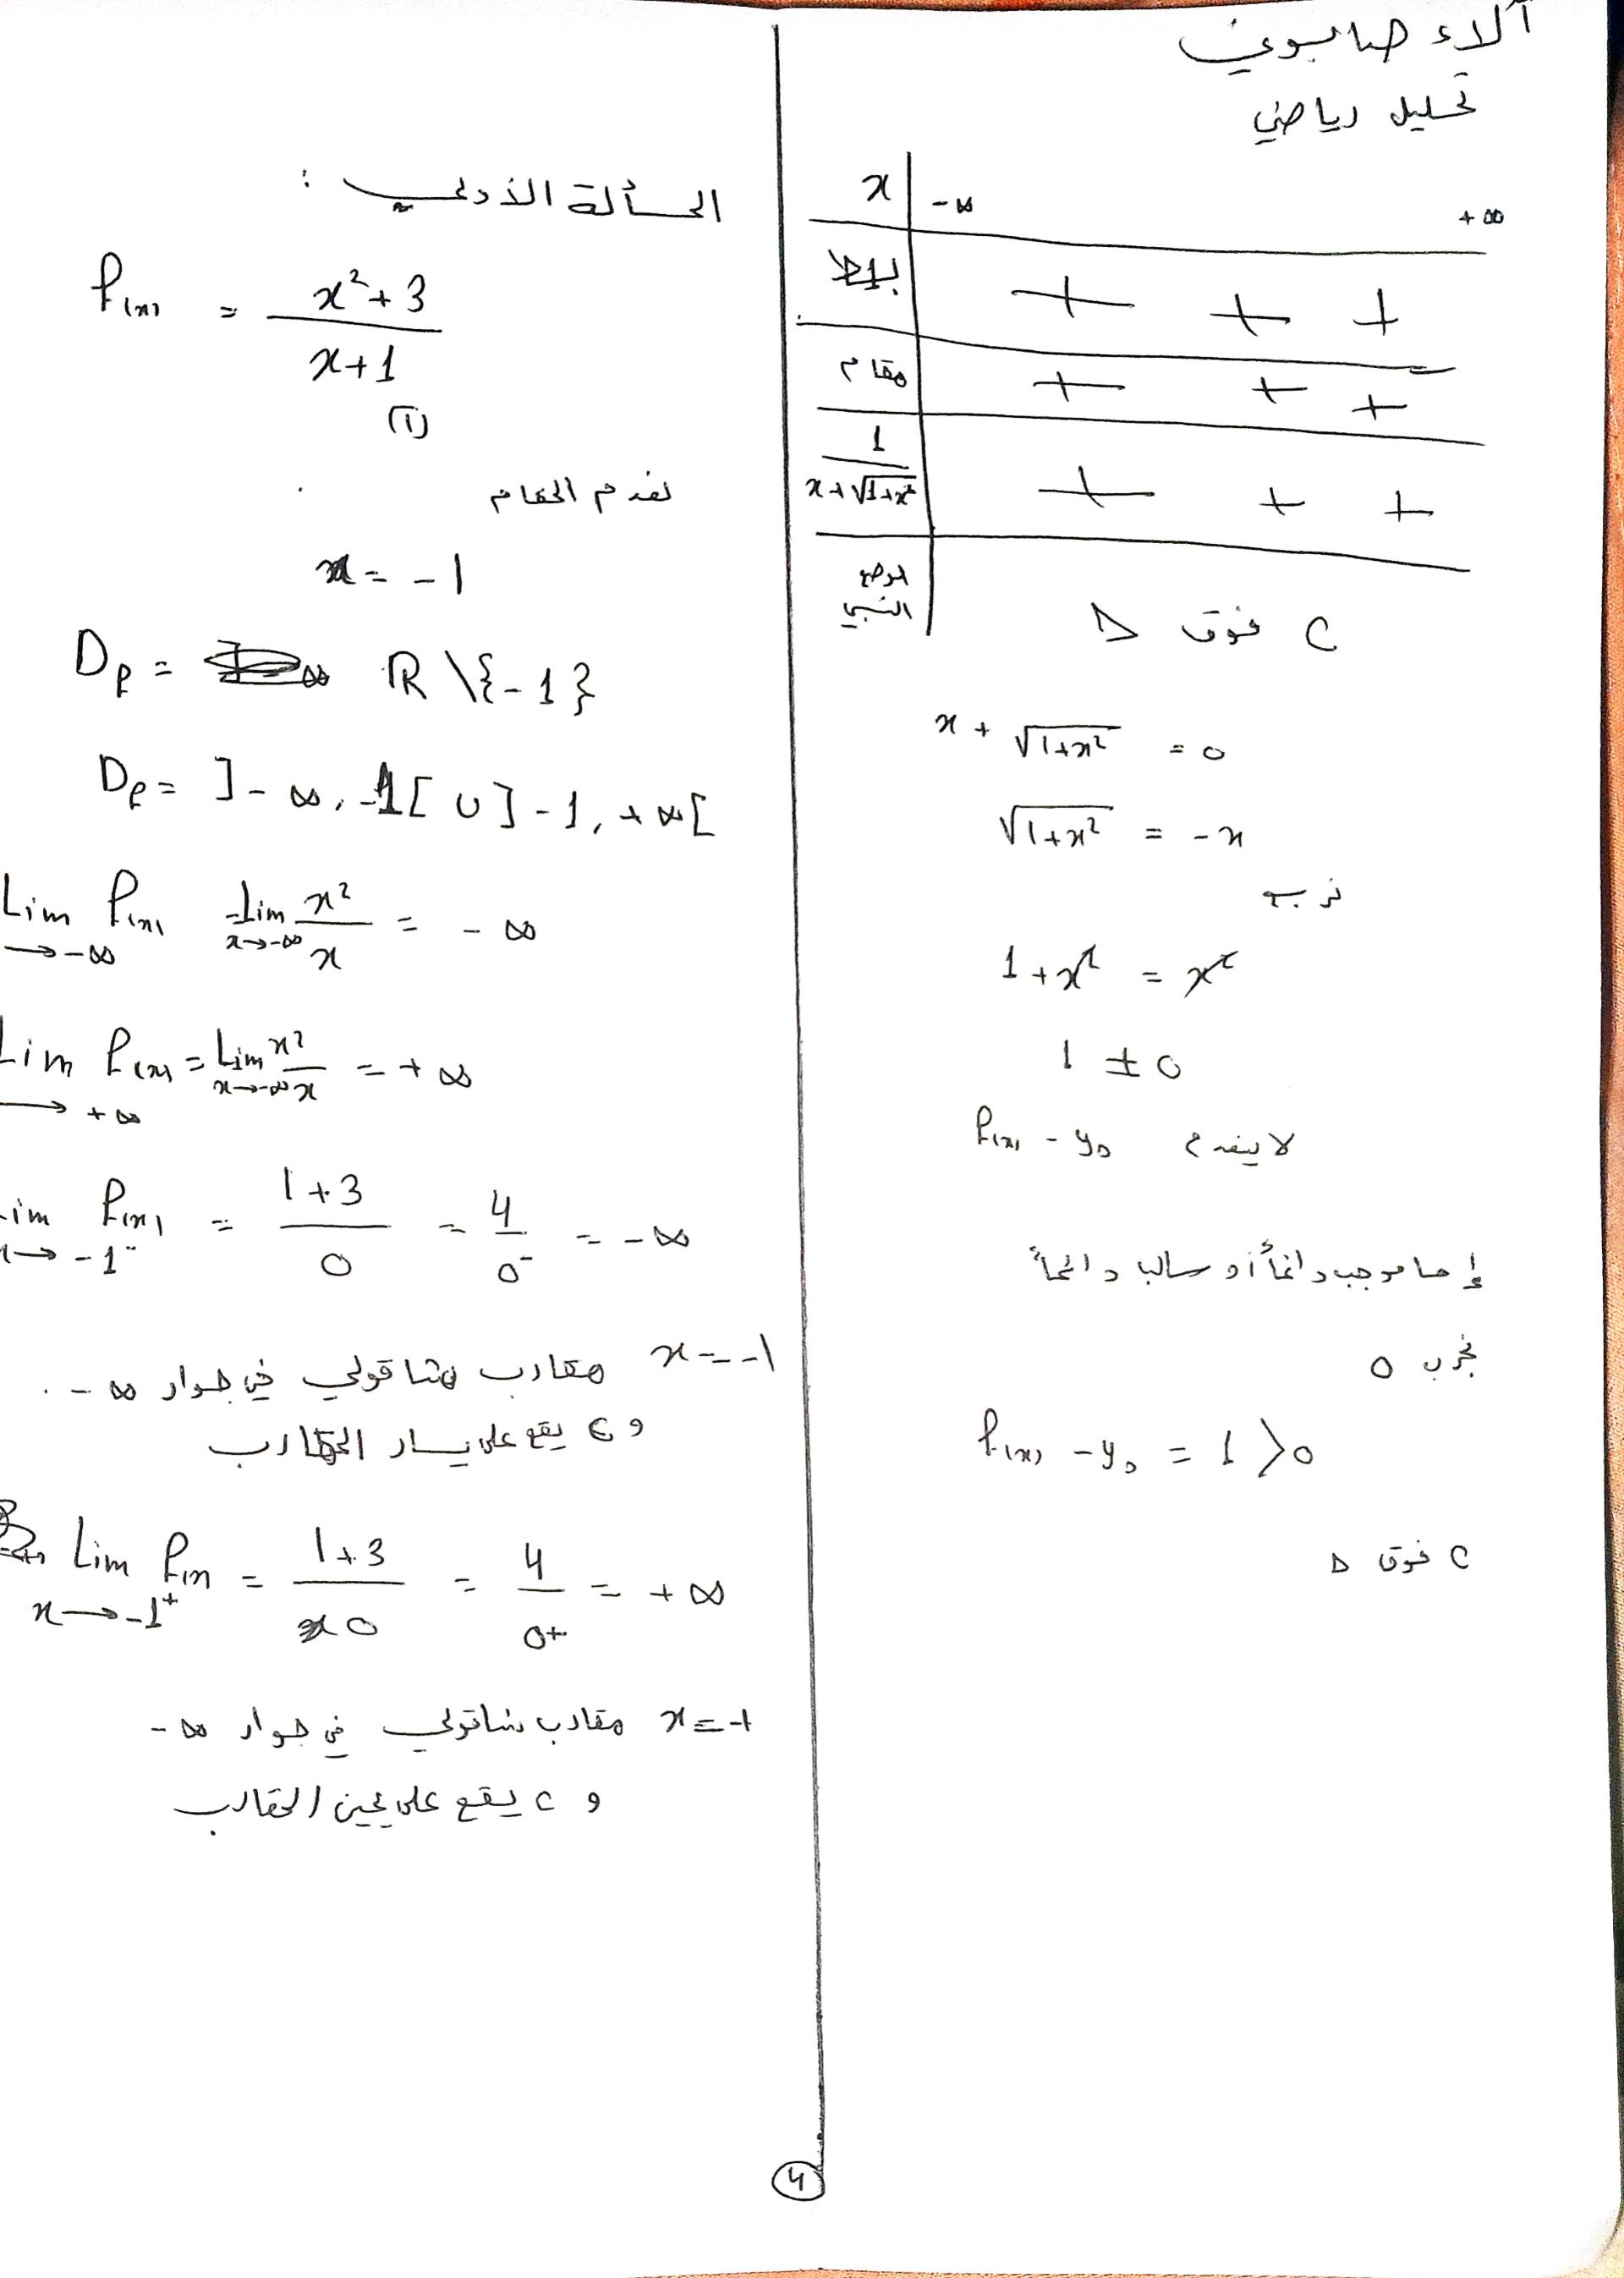 آلاء صابوني
تحليل رياضي
x | -∞ +∞
بسط | + + +
مقام | + + +
1/(x+√(1+x²)) | + + +
الوضع النسبي | C فوق Δ
x + √(1+x²) = 0
√(1+x²) = -x
نربع
1+x² = x²
1 ≠ 0
لا ينعدم f(x) - yΔ
إما موجب دائماً أو سالب دائماً
نجرب 0
f(x) - yΔ = 1 > 0
C فوق Δ
المسألة الأولى :
f(x) = (x²+3)/(x+1)
(1)
نعدم المقام
x = -1
Df = R \{-1}
Df = ]-∞, -1[ ∪ ]-1, +∞[
Lim f(x) →-∞ Lim x→-∞ x²/x = -∞
Lim f(x) →+∞ = Lim x→-∞ x²/x = +∞
Lim f(x) x→-1⁻ = (1+3)/0 = 4/0⁻ = -∞
x=-1 مقارب شاقولي في جوار -∞
و C يقع على يسار المقارب
Lim f(x) x→-1⁺ = (1+3)/0 = 4/0+ = +∞
x=-1 مقارب شاقولي في جوار -∞
و C يقع على يمين المقارب
4